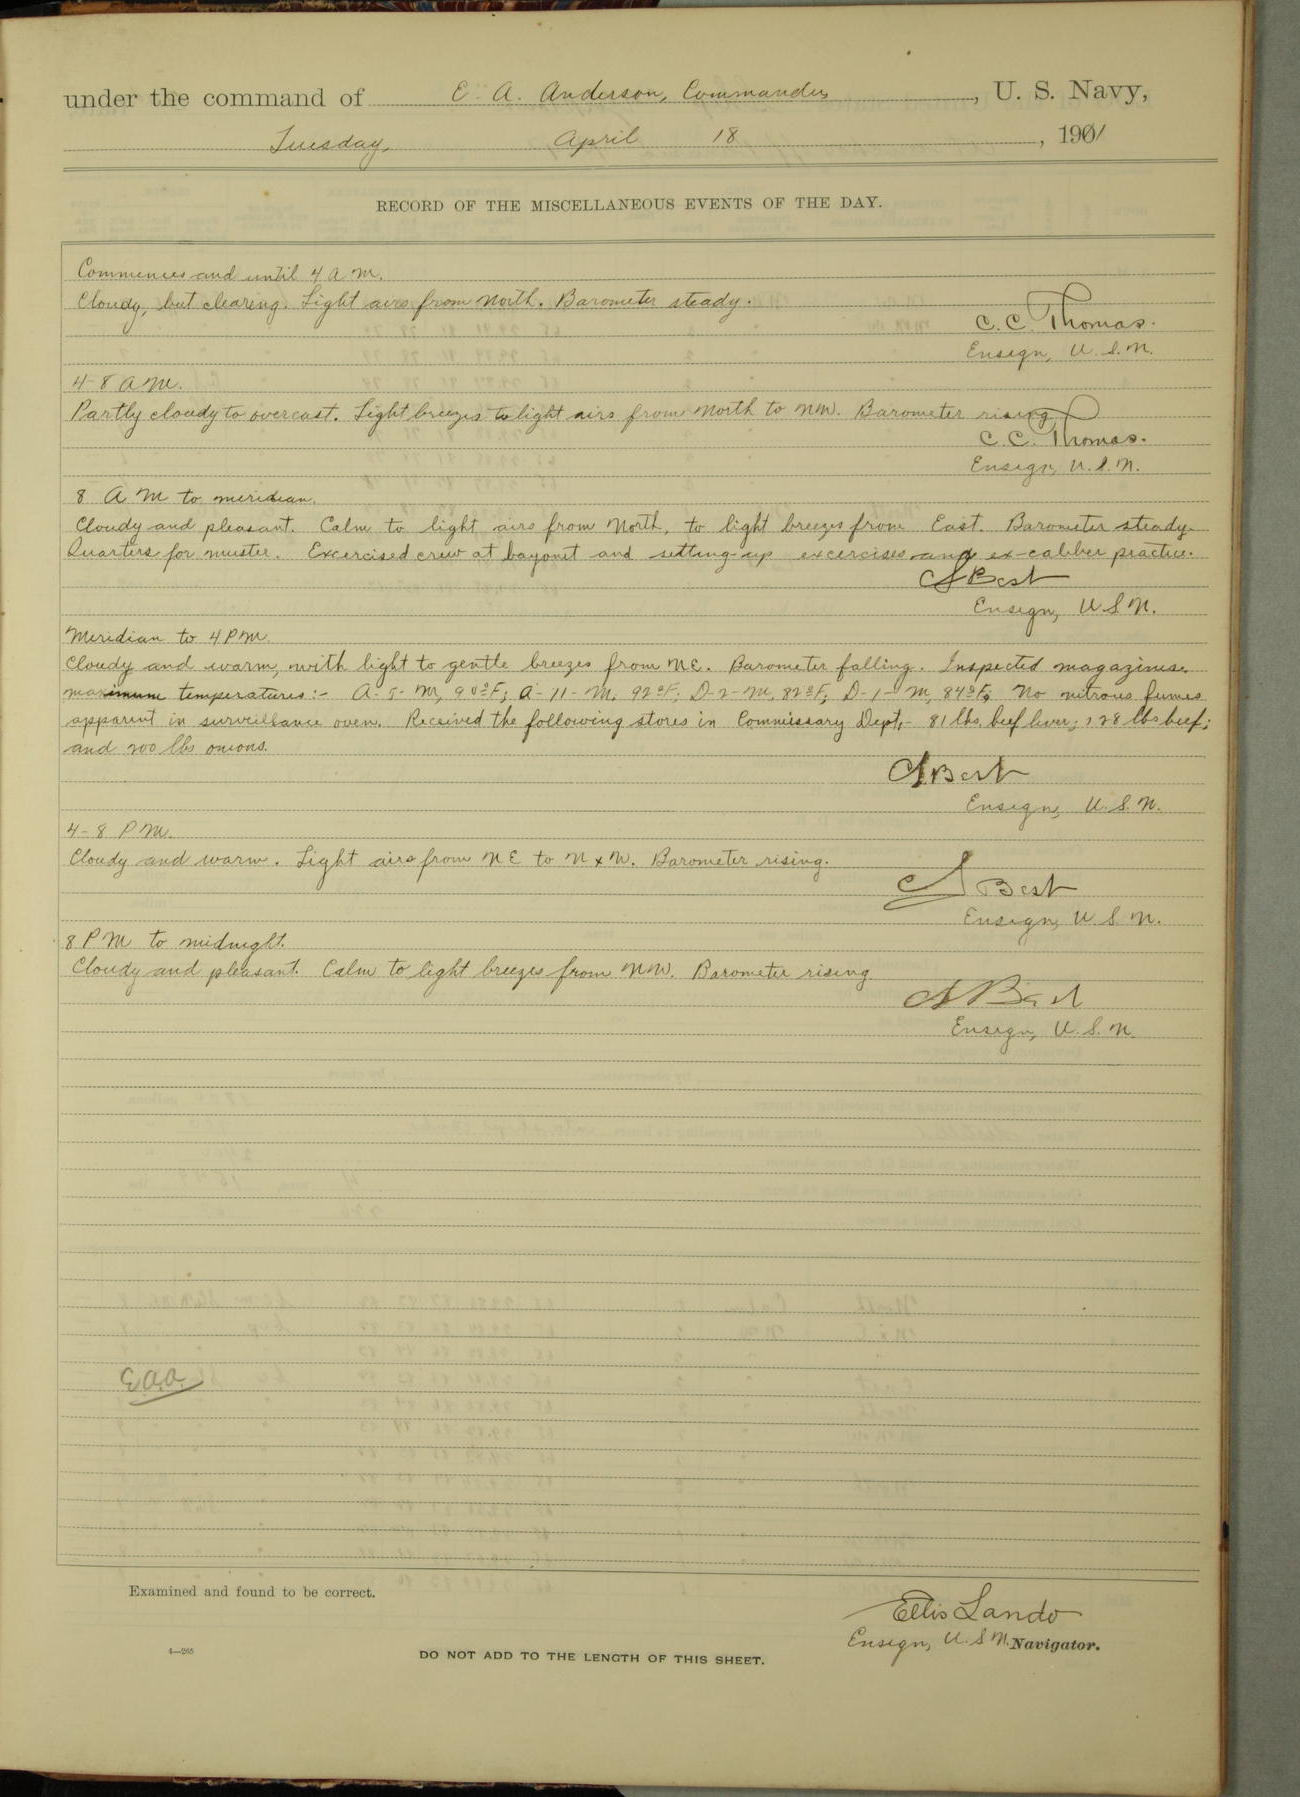 under the command of E. A. Anderson, Commander, U. S. Navy,
Tuesday, April 18, 1901
RECORD OF THE MISCELLANEOUS EVENTS OF THE DAY.
Commences and until 4 A M.
Cloudy, but clearing. Light airs from North. Barometer steady.
C. C. Thomas.
Ensign, U. S. N.
4-8 A M.
Partly cloudy to overcast. Light breezes to light airs from North to NW. Barometer rising
C. C. Thomas.
Ensign, U. S. N.
8 A M to meridian.
Cloudy and pleasant. Calm to light airs from North, to light breezes from East. Barometer steady.
Quarters for muster. Excercised crew at bayonet and setting-up excercises and ex-caliber practice.
CS Best
Ensign, U S N.
Meridian to 4 P M.
Cloudy and warm, with light to gentle breezes from NE. Barometer falling. Inspected magazines.
maximum temperatures:- A-5-M, 90°F; A-11-M, 92°F; D-2-M, 82°F; D-1-M, 84°F; No nitrous fumes
apparent in surveillance oven. Received the following stores in Commissary Dept,- 81 lbs. beef liver; 128 lbs beef;
and 200 lbs onions.
CS Best
Ensign, U. S. N.
4-8 P M.
Cloudy and warm. Light airs from N E to N x W. Barometer rising.
CS Best
Ensign, U. S. N.
8 P M to midnight.
Cloudy and pleasant. Calm to light breezes from NW. Barometer rising
CS Best
Ensign, U. S. N.
E.A.A.
Examined and found to be correct.
Ellis Lando
Ensign, U. S N. Navigator.
4—265
DO NOT ADD TO THE LENGTH OF THIS SHEET.